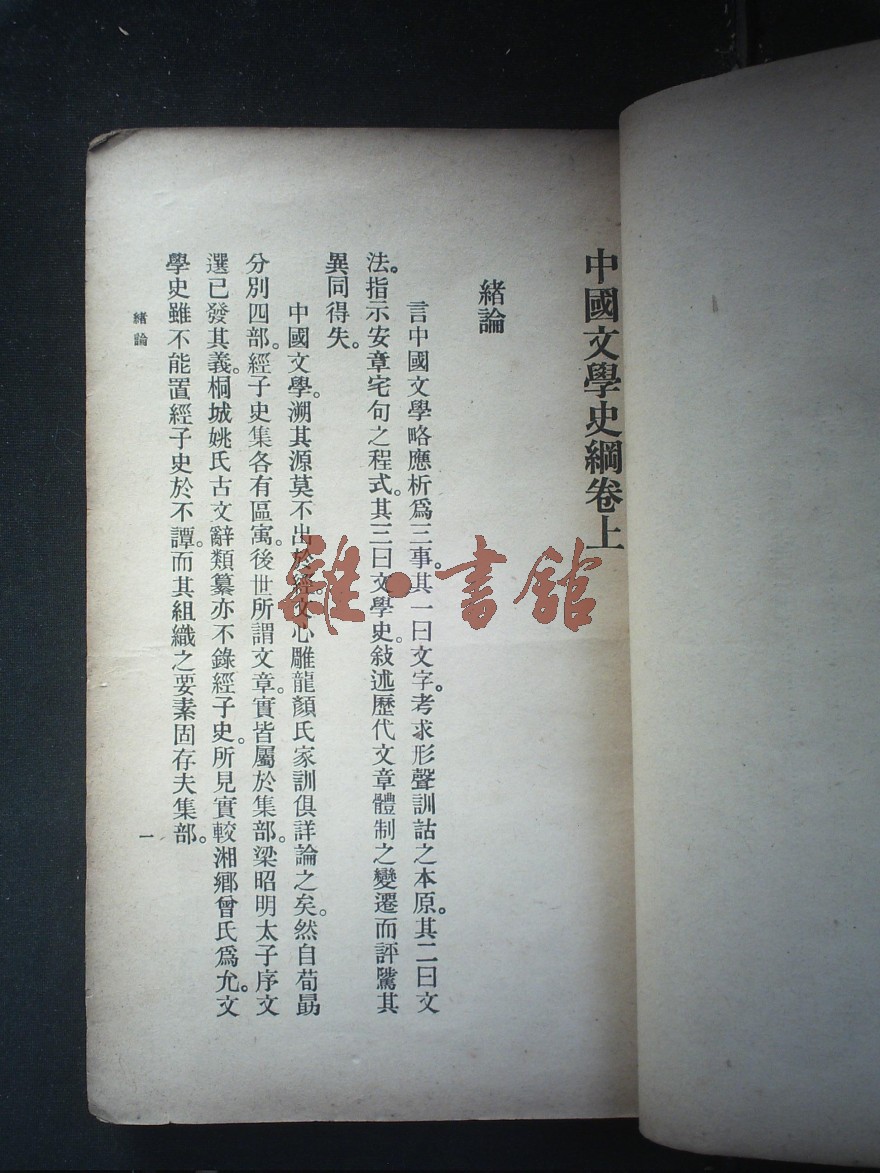 中國文學史綱卷上
緒論
言中國文學略應析爲三事。其一曰文字。考求形聲訓詁之本原。其二曰文
法。指示安章宅句之程式。其三曰文學史。敍述歷代文章體制之變遷而評騭其
異同得失。
中國文學。溯其源莫不出於經。文心雕龍顏氏家訓俱詳論之矣。然自荀勗
分別四部。經子史集各有區寓。後世所謂文章。實皆屬於集部。梁昭明太子序文
選已發其義。桐城姚氏古文辭類纂亦不錄經子史。所見實較湘鄉曾氏爲允。文
學史雖不能置經子史於不譚。而其組織之要素固存夫集部。
緒論
一
雜·書館